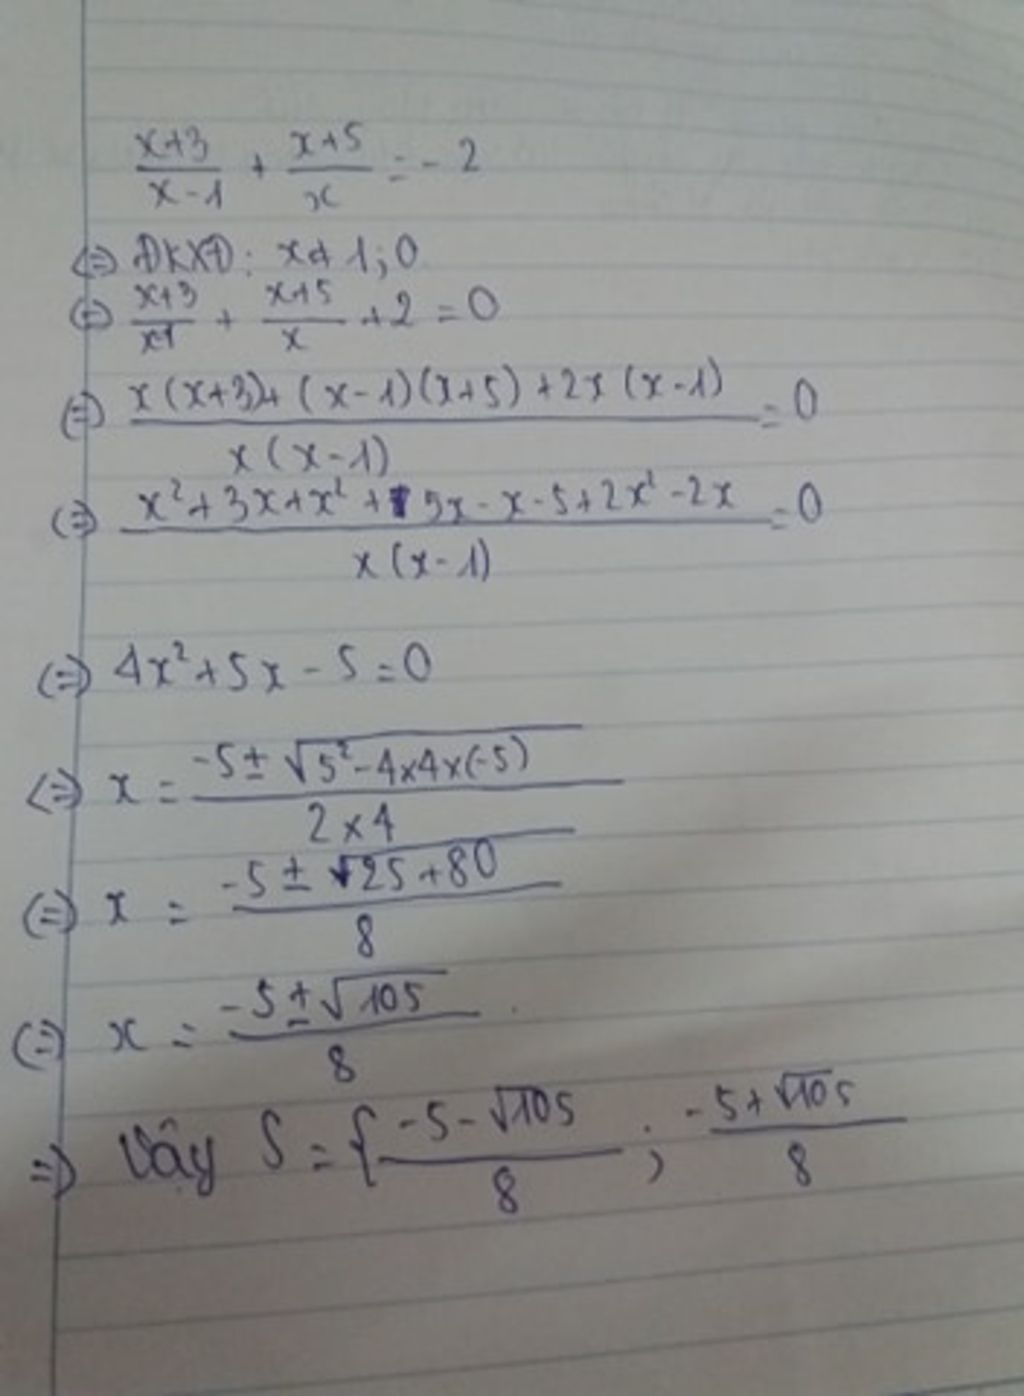 x+3/x-1 + x+5/x = -2
(=) ĐKXĐ: x≠1;0
(=) x+3/x-1 + x+5/x +2=0
(=) x(x+3)+(x-1)(x+5)+2x(x-1)/x(x-1) =0
(=) x²+3x+x²+5x-x-5+2x²-2x/x(x-1) =0
(=) 4x²+5x-5=0
(=) x = -5±√5²-4x4x(-5)/2x4
(=) x = -5±√25+80/8
(=) x = -5±√105/8
=) Vậy S={-5-√105/8 ; -5+√105/8